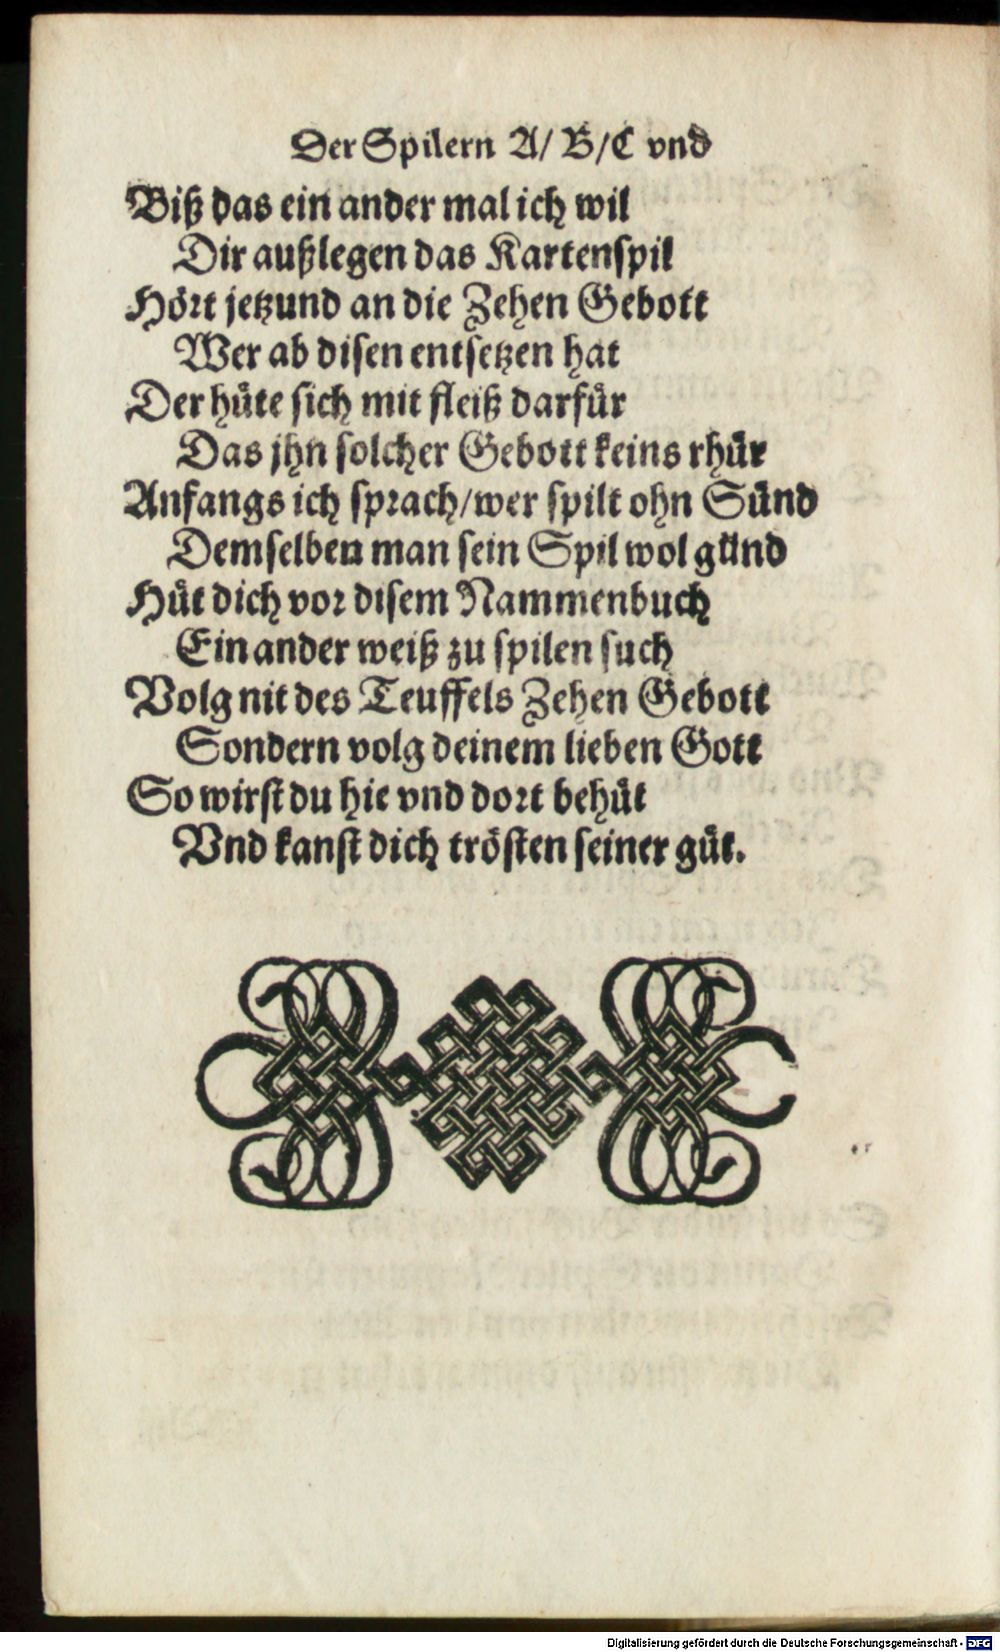 Der Spilern A/ B/ C vnd
Biß das ein ander mal ich wil
Dir außlegen das Kartenspil
Hört jetzund an die Zehen Gebott
Wer ab disen entsetzen hat
Der hüte sich mit fleiß darfür
Das jhn solcher Gebott keins rhür
Anfangs ich sprach/ wer spilt ohn Sünd
Demselben man sein Spil wol günd
Hüt dich vor disem Nammenbuch
Ein ander weiß zu spilen such
Volg nit des Teuffels Zehen Gebott
Sondern volg deinem lieben Gott
So wirst du hie vnd dort behüt
Vnd kanst dich trösten seiner güt.
Digitalisierung gefördert durch die Deutsche Forschungsgemeinschaft - DFG